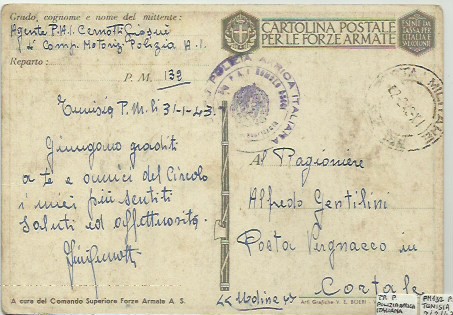 Grado, cognome e nome del mittente:
Agente P.A.I. Cernotti
1ª Comp. Motoriz. Polizia A. I.
Reparto:
P. M. 139
CARTOLINA POSTALE
PER LE FORZE ARMATE
ESENTE DA
TASSA PER
L'ITALIA E
POLIZIA AFRICA ITALIANA
Tunisia P.M. li 31-1-43
Giungono graditi
a te e amici del Circolo
i miei più sentiti
saluti ed affettuosità
Al Ragioniere
Alfredo Gentilini
Posta Vignacco in
Cortale
A cura del Comando Superiore Forze Armate A. S.
Art. Grafiche V. E. BOERI
P
POLIZIA AFRICA
ITALIANA
TUNISIA